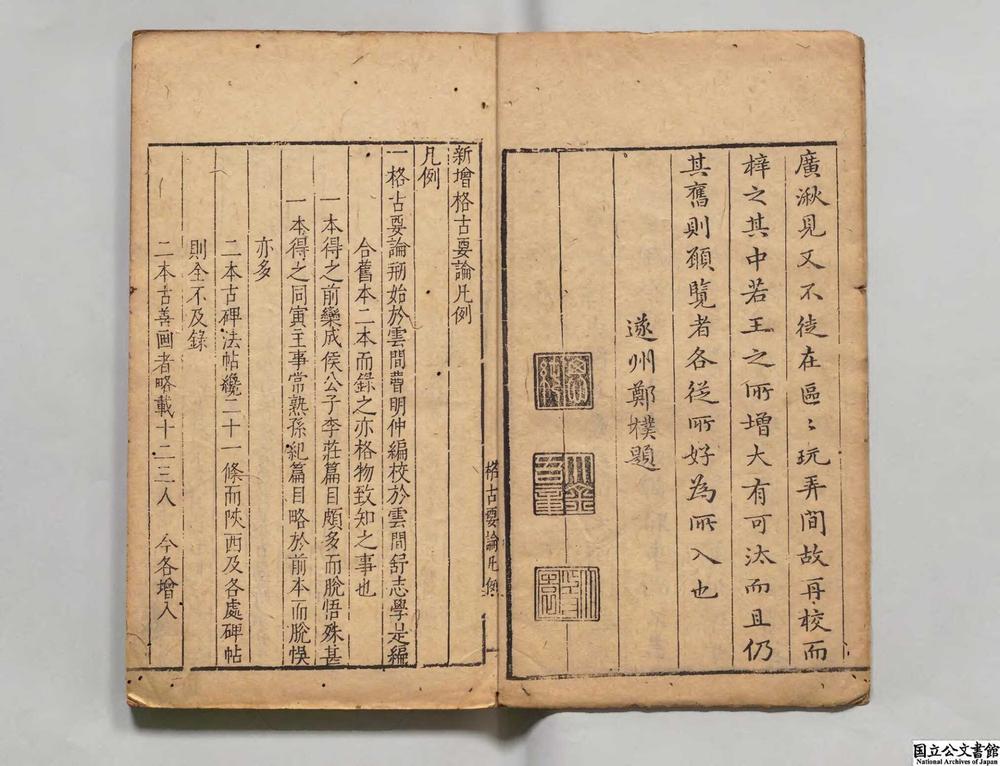 廣湫見又不徒在區〻玩弄間故再校而
梓之其中若王之所增大有可汰而且仍
其舊則願覽者各從所好為所入也
遂州鄭樸題
新增格古要論凡例
凡例
一格古要論刱始於雲間曹明仲編校於雲間舒志學是編
合舊本二本而錄之亦格物致知之事也
一本得之前欒成侯公子李莊篇目頗多而脫悞殊甚
一本得之同寅主事常熟孫紀篇目略於前本而脫悞
亦多
二本古碑法帖纔二十一條而陝西及各處碑帖
則全不及錄
二本古善画者略載十二三人 今各增入
格古要論凡例
国立公文書館
National Archives of Japan